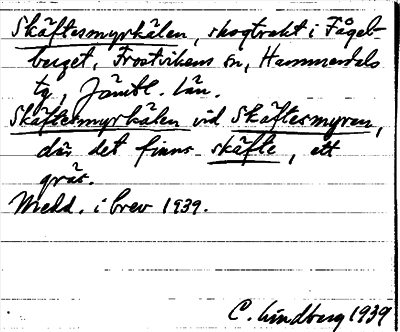 Skäftesmyrkälen, skogtrakt i Fågel-
berget, Frostvikens sn, Hammerdals
tg, Jämtl. län.
Skäftesmyrkälen vid Skäftesmyren,
där det finns skäfte, ett
gräs.
Medd. i brev 1939.
C. Lindberg 1939